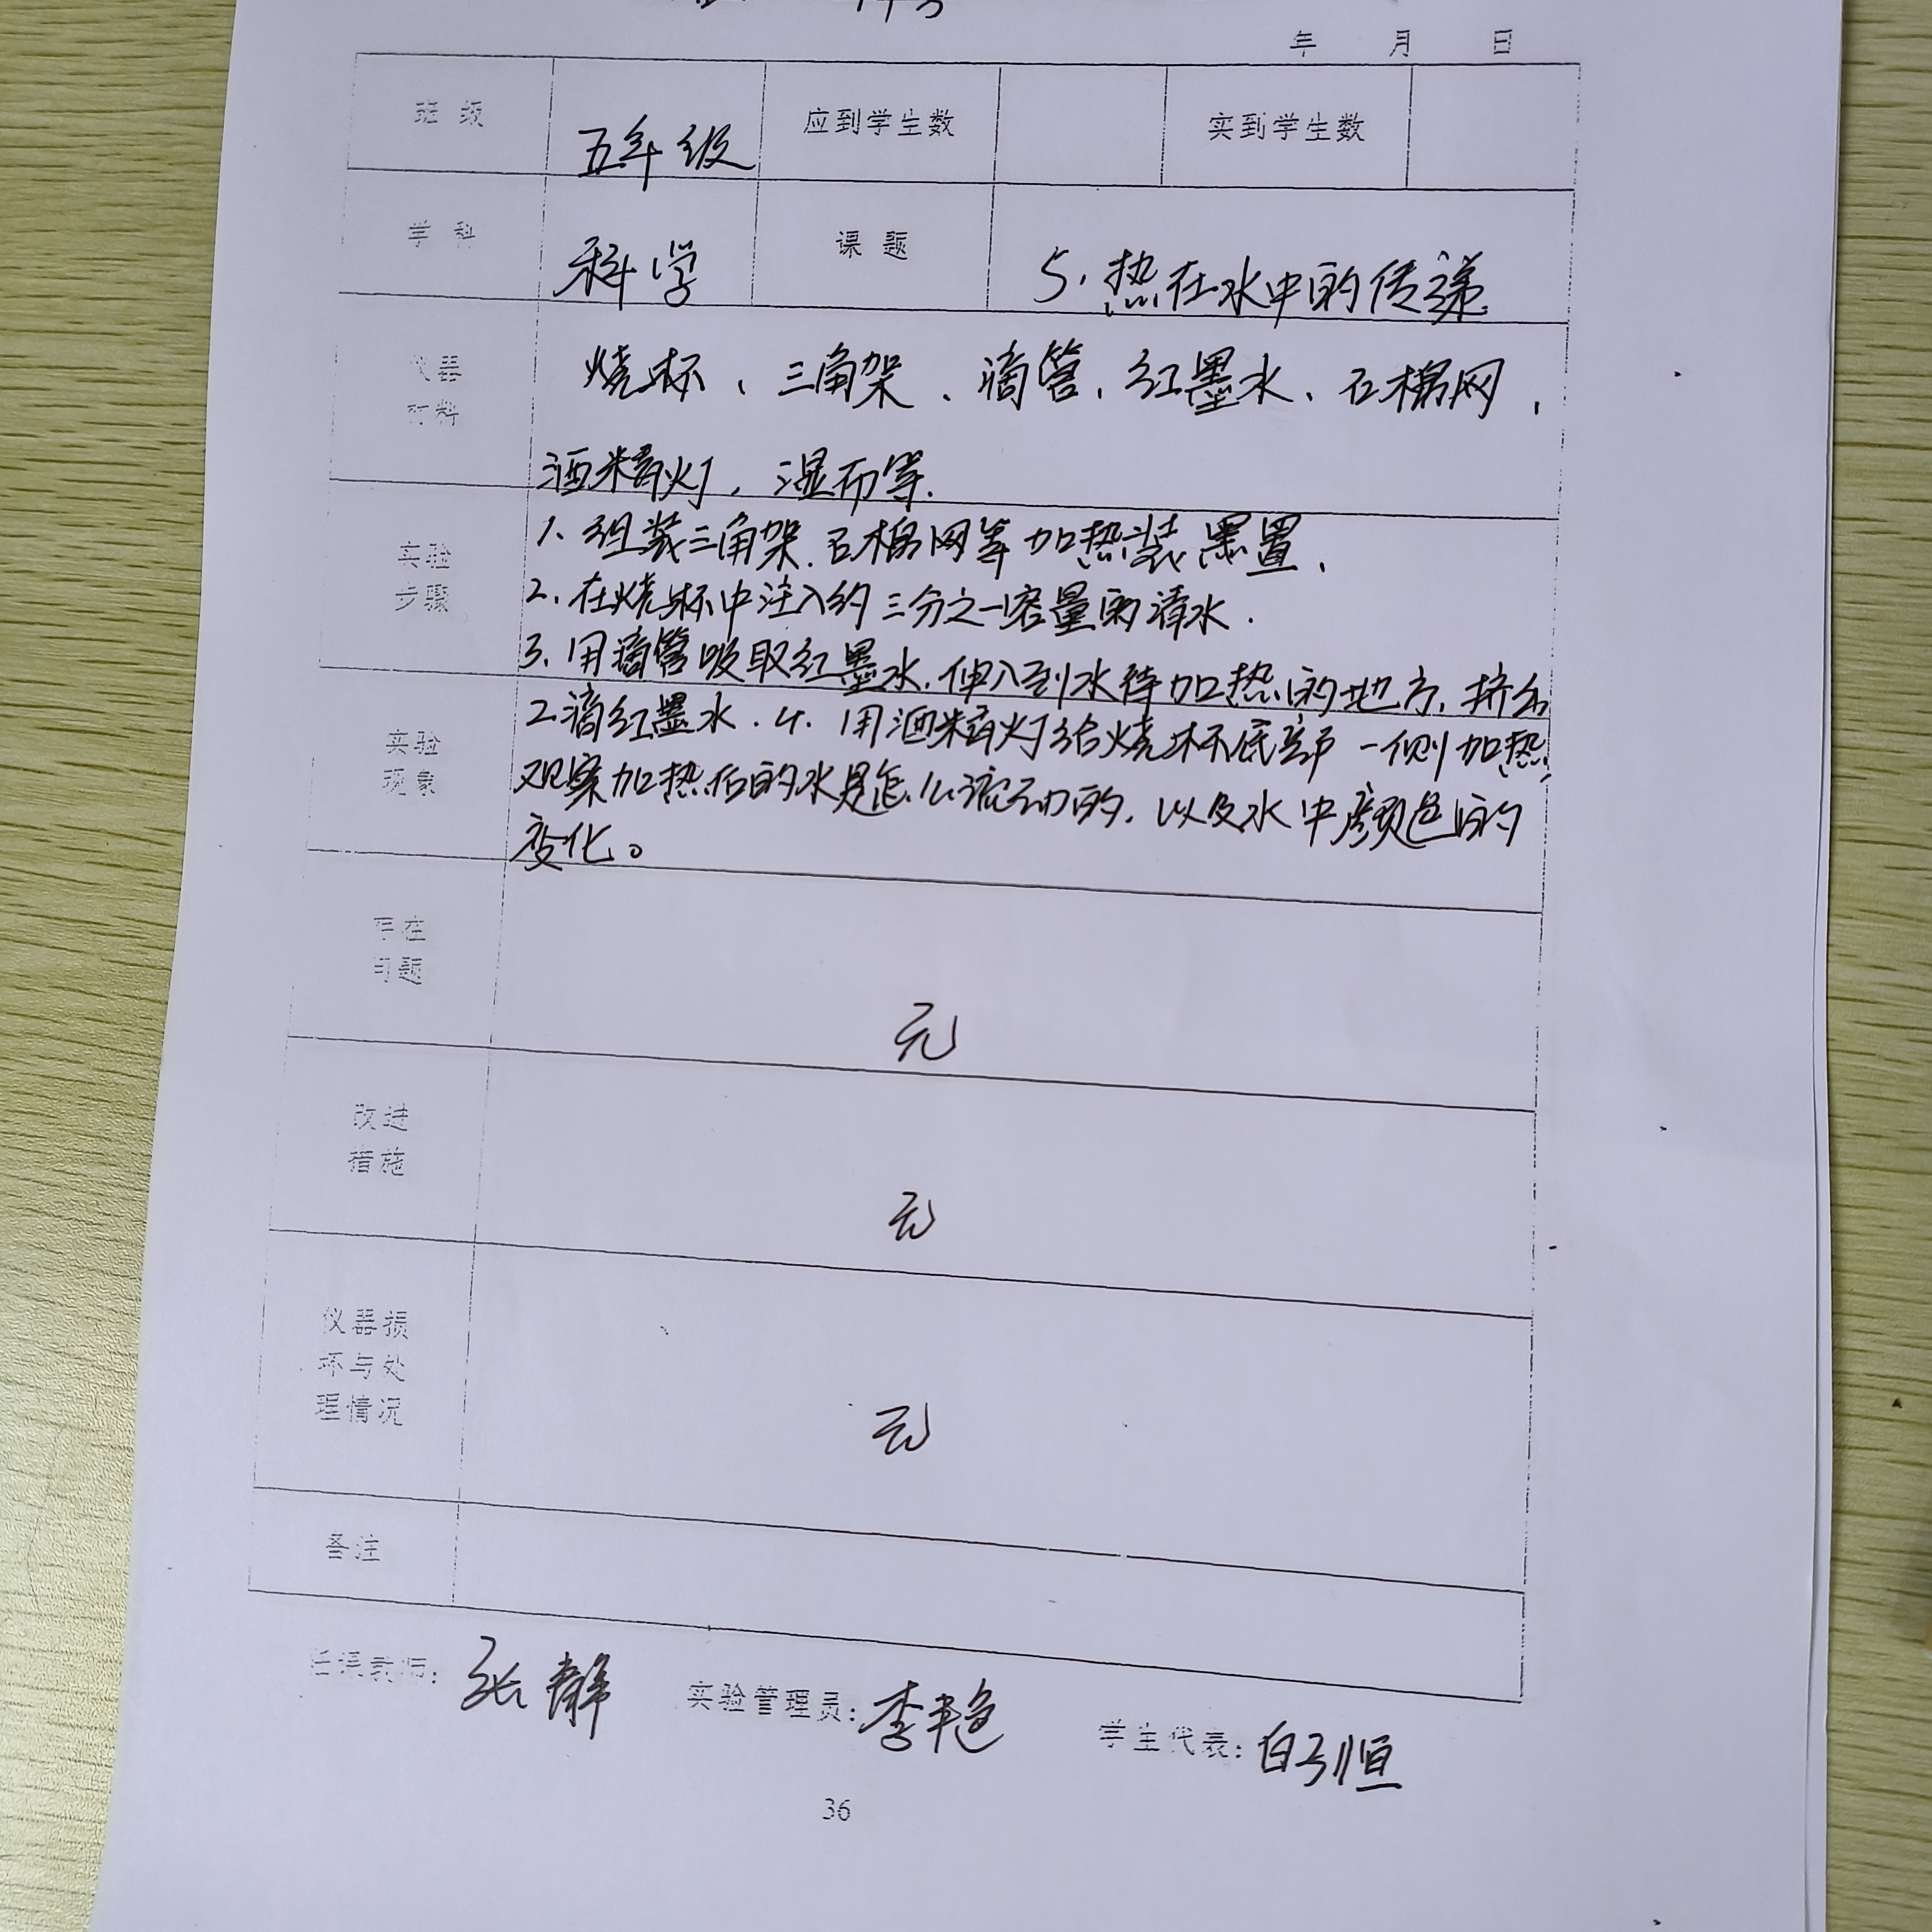 年 月 日
班级 五年级 应到学生数 实到学生数
学科 科学 课题 5.热在水中的传递
仪器 烧杯、三角架、滴管、红墨水、石棉网、
材料
酒精灯，湿布等.
1、组装三角架.石棉网等加热装置、
实验
步骤 2、在烧杯中注入约三分之一容量的清水.
3、用滴管吸取红墨水.伸入到水待加热的地方,挤出
2滴红墨水.4.用酒精灯给烧杯底部一侧加热,
实验
现象 观察加热后的水是怎么流动的,以及水中颜色的
变化。
存在
问题
元
改进
措施
元
仪器损
坏与处
理情况
元
备注
任课教师: 张静 实验管理员: 李艳 学生代表: 白引恒
36